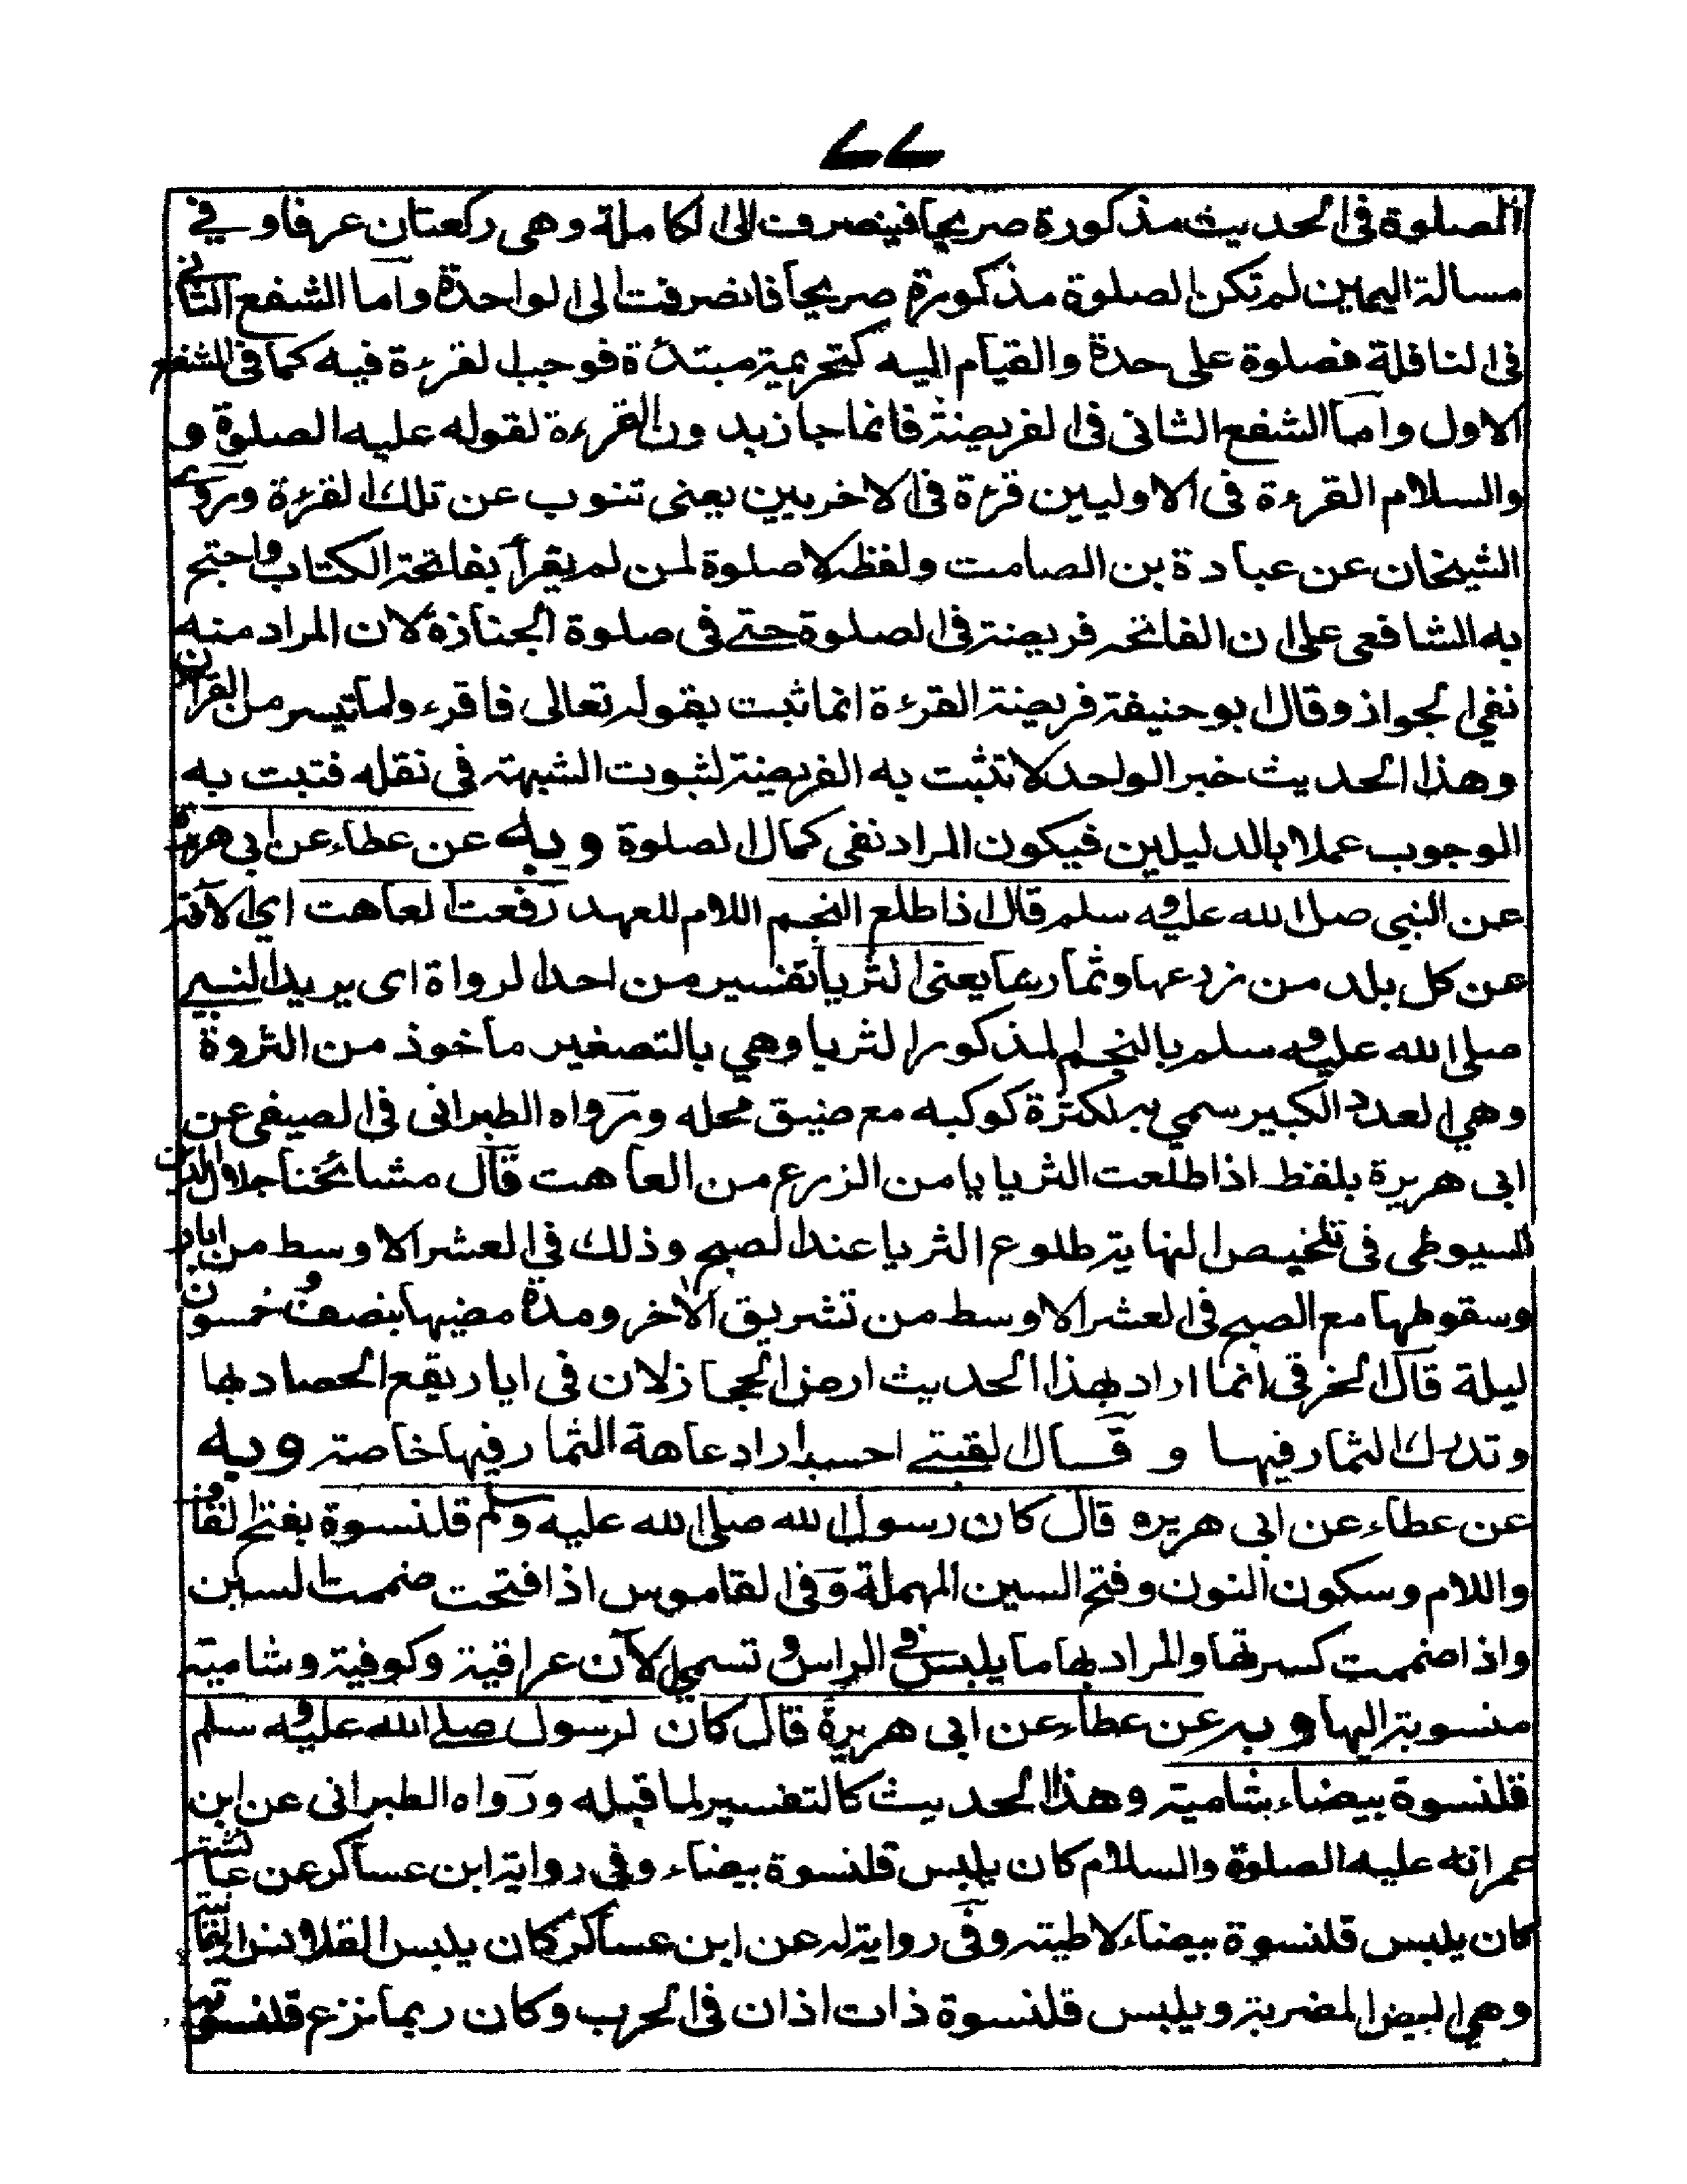 ۷۷
الصلوة فى الحديث مذكورة صريحا فينصرف الى الكاملة وهى ركعتان عرفا وفي
مسالة اليمين لم تكن الصلوة مذكورة صريحا فانصرفت الى الواحدة واما الشفع الثانى
فى النافلة فصلوة على حدة والقيام اليه كتحريمة مبتدئة فوجب القرءة فيه كما فى الشفع
الاول واما الشفع الثانى فى الفريضة فانما جاز بدون القرءة لقوله عليه الصلوة و
والسلام القرءة فى الاوليين قرءة فى الاخريين يعنى تنوب عن تلك القرءة وروى
الشيخان عن عبادة بن الصامت ولفظه لا صلوة لمن لم يقرأ بفاتحة الكتاب واحتج
به الشافعى على ان الفاتحه فريضة فى الصلوة حتے فى صلوة الجنازة لان المراد منه
نفي الجواز وقال ابو حنيفة فريضة القرءة انما ثبت بقوله تعالى فاقرءوا ما تيسر من القران
وهذا الحديث خبر الواحد لا تثبت به الفريضة لثبوت الشبهة فى نقله فتبت به
الوجوب عملا بالدليلين فيكون المراد نفى كمال الصلوة وبه عن عطاء عن ابى هريرة
عن النبي صلى الله عليه وسلم قال اذا طلع النجم اللام للعهد رفعت العاهت اى الآفة
عن كل بلد من زرعها وثمارها يعنى الثريا تفسير من احد الرواة اى يريد النبے
صلى الله عليه وسلم بالنجم المذكور الثريا وهي بالتصغير ماخوذ من الثروة
وهي العدد الكبير سمي به لكثرة كوكبه مع ضيق محله ورواه الطبرانى فى الصيفى عن
ابى هريرة بلفظ اذا طلعت الثريا يا من الزرع من العاهت قال مشائخنا جلال الدين
السيوطى فى تلخيص النهاية طلوع الثريا عند الصبح وذلك في العشر الاوسط من ايار
وسقوطها مع الصبح فى العشر الاوسط من تشريق الاخر ومدة مضيها بنصف وخمسون
ليلة قال الخرقى انما اراد بهذا الحديث ارض الحجاز لان فى ايار يقع الحصاد بها
وتدرك الثمار فيها و قال لقبتے احسبه اراد عاهة الثمار فيها خاصة وبه
عن عطاء عن ابى هريره قال كان رسول الله صلى الله عليه وسلم قلنسوة بفتح القاف
واللام وسكون النون وفتح السين المهملة وفى القاموس اذا فتحت ضممت السين
واذا ضممت كسرتها والمراد بها ما يلبس فى الراس و تسمى الآن عراقية وكوفية وشامية
منسوبة اليها وبه عن عطاء عن ابى هريرة قال كان لرسول صلے الله عليه وسلم
قلنسوة بيضاء شامية وهذا الحديث كالتفسير لما قبله ورواه الطبرانى عن ابن
عمر انه عليه الصلوة والسلام كان يلبس قلنسوة بيضاء وفى رواية ابن عساكر عن عائشة
كان يلبس قلنسوة بيضاء لاطيته وفى رواية له عن ابن عساكر كان يلبس القلانس
وهي البيض المضربة ويلبس قلنسوة ذات اذان فى الحرب وكان ربما نزع قلنسوته